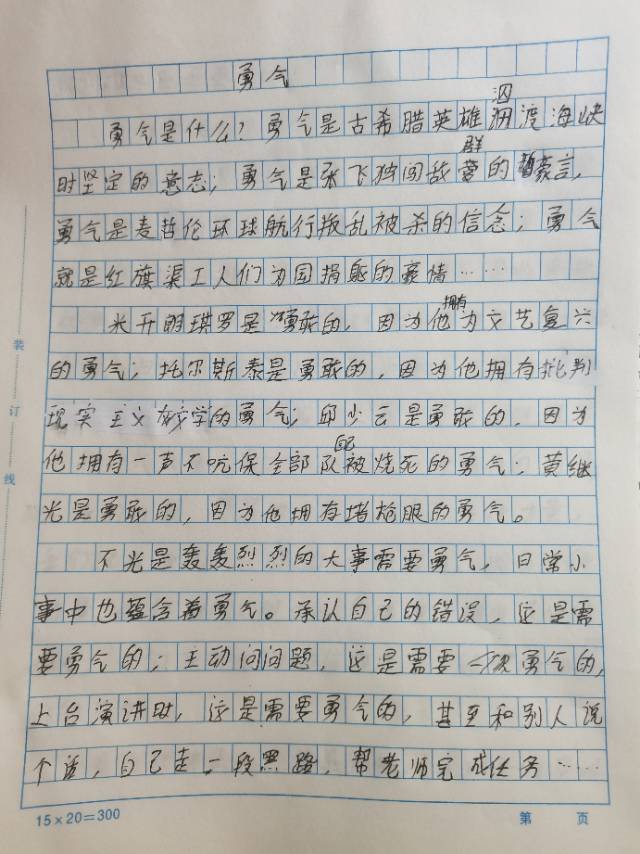 勇气
泅
勇气是什么？勇气是古希腊英雄渡海峡
群
时坚定的意志；勇气是张飞独闯敌营的豪言，
勇气是麦哲伦环球航行叛乱被杀的信念；勇气
就是红旗渠工人们为国捐躯的豪情……
拥有
米开朗琪罗是勇敢的，因为他为文艺复兴
的勇气；托尔斯泰是勇敢的，因为他拥有批判
现实主义文学的勇气；邱少云是勇敢的，因为
他拥有一声不吭保全部队被烧死的勇气；黄继
光是勇敢的，因为他拥有堵枪眼的勇气。
不光是轰轰烈烈的大事需要勇气，日常小
事中也蕴含着勇气。承认自己的错误，这是需
要勇气的；主动问问题，这是需要一次勇气的，
上台演讲时，这是需要勇气的，甚至和别人说
个话，自己走一段黑路，帮老师完成任务……
装
订
线
15×20=300
第 页